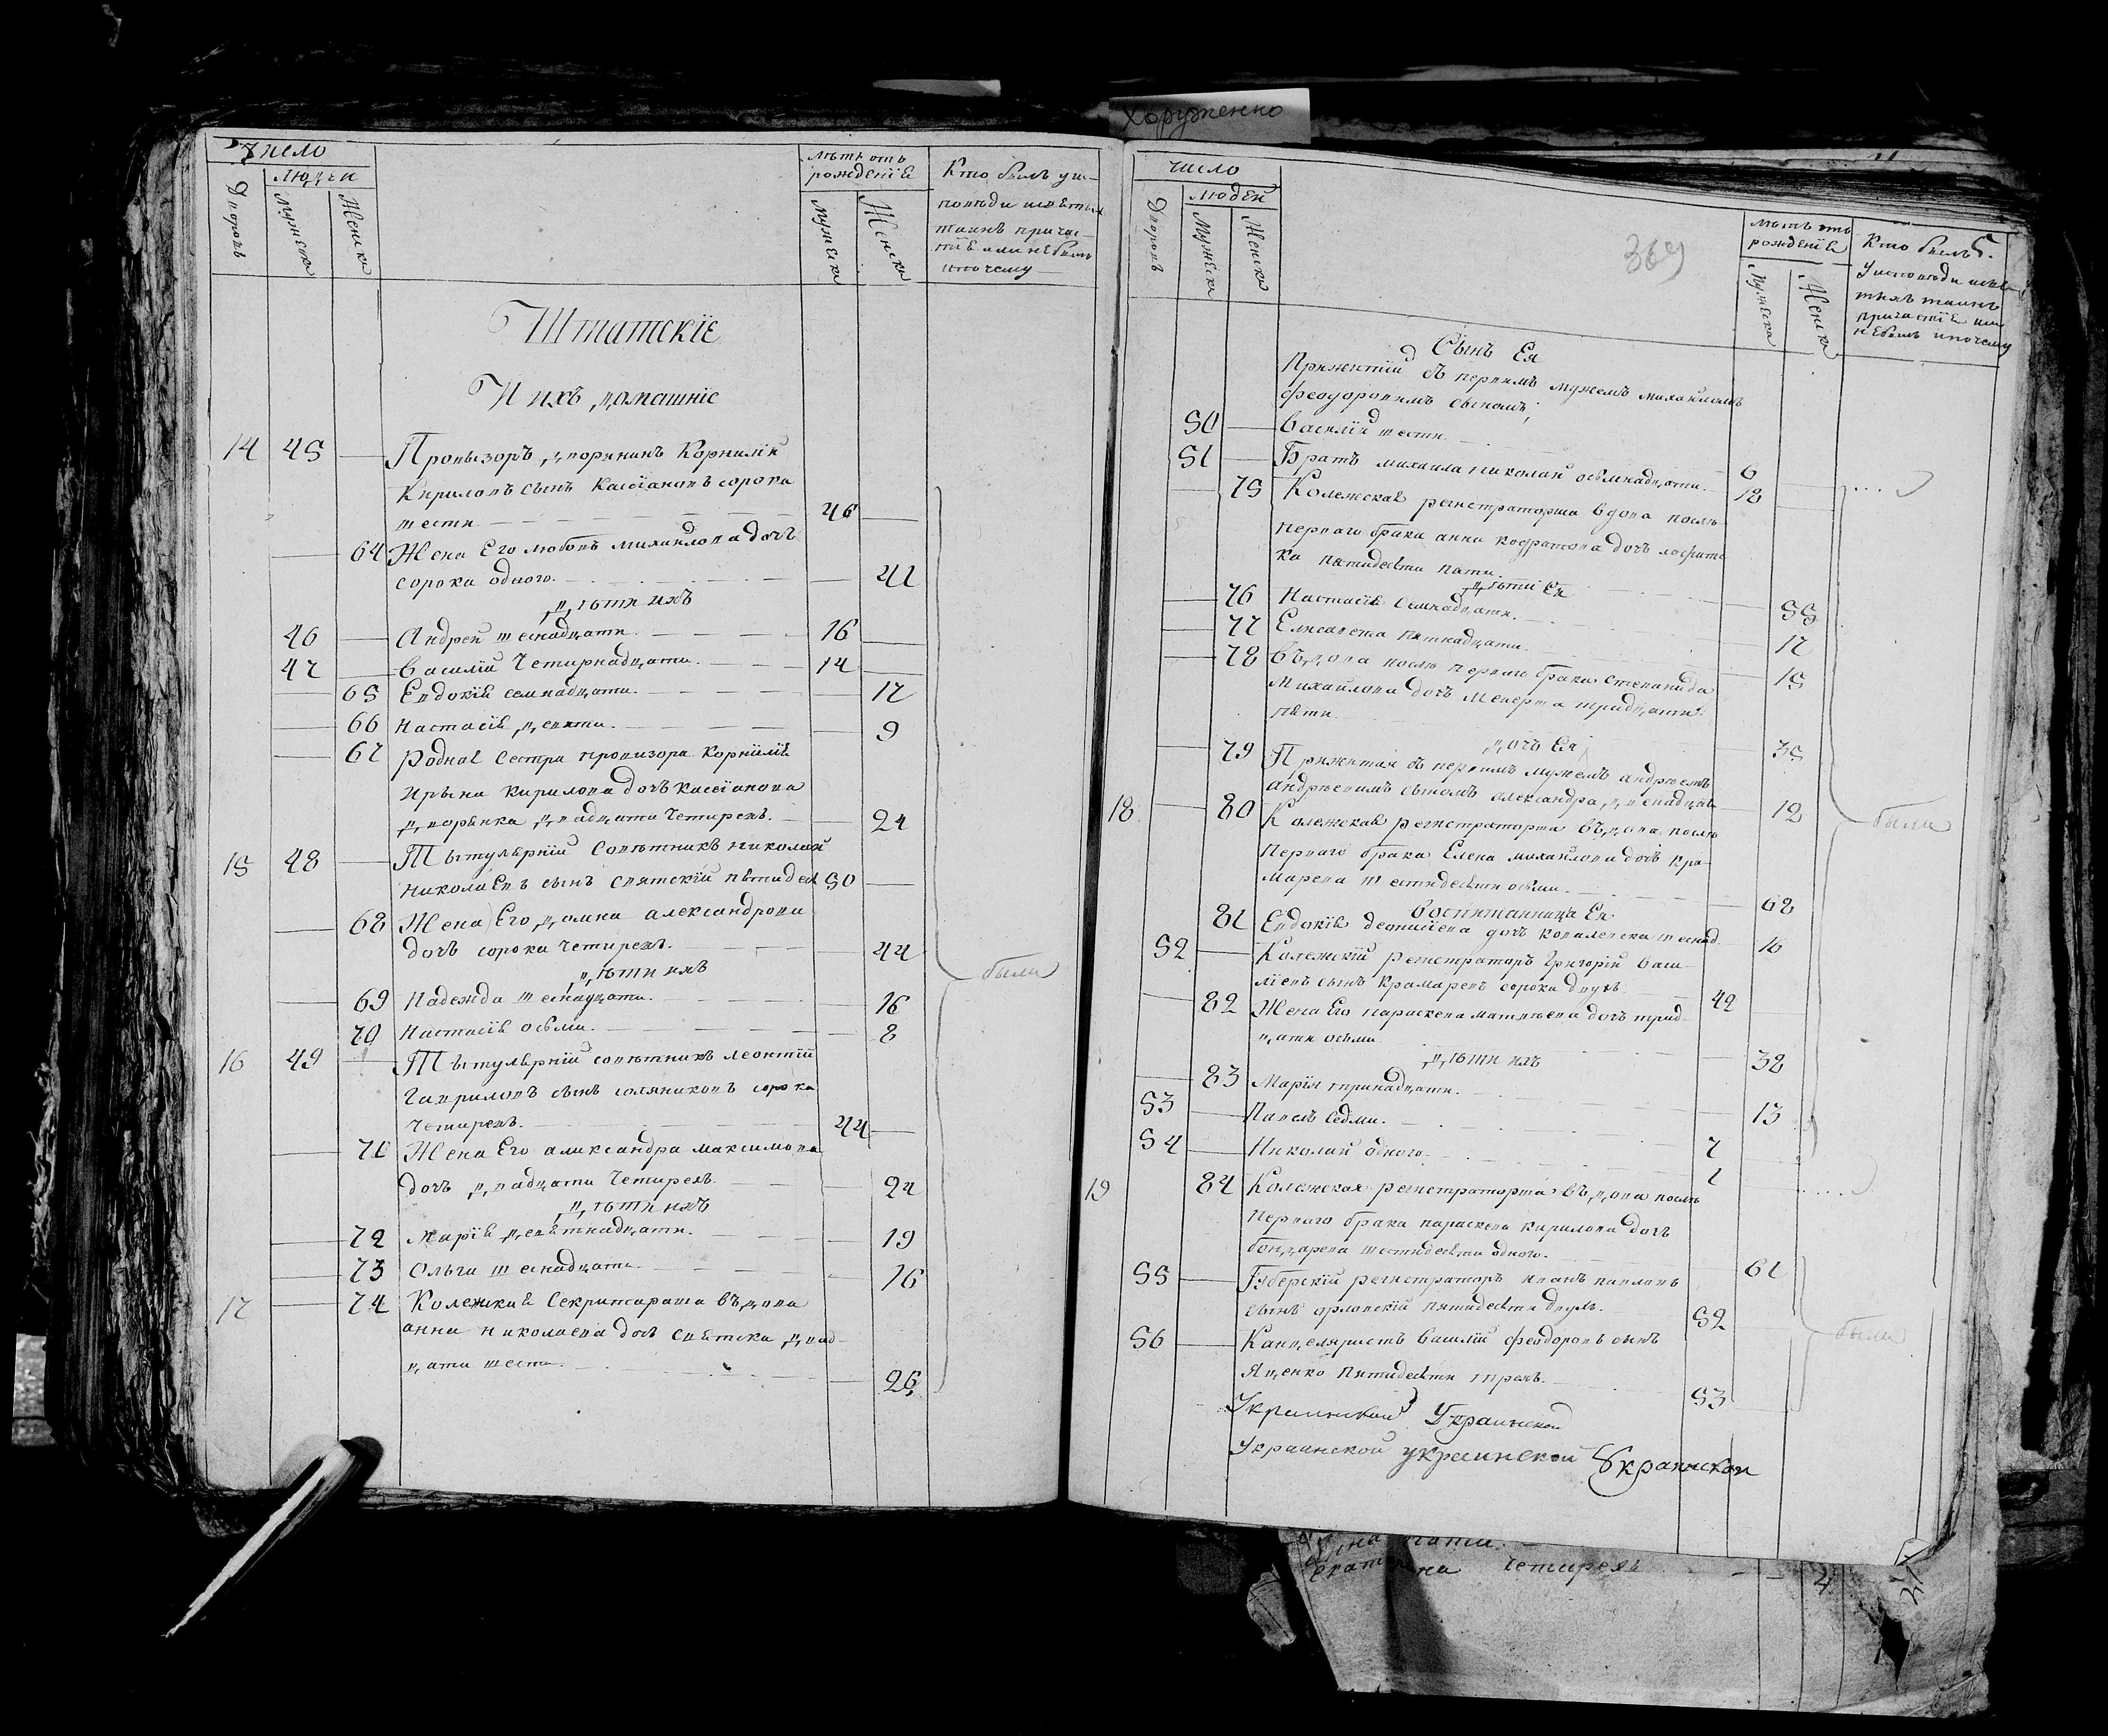 Хоруженко
Число
Людей
Дворовъ
Мужеска
Женска
лѣтъ отъ
рожденіе
мужеска
Женска
Кто былъ у ис-
повѣди и святыхъ
таинъ причас-
тіе или небылъ
и почему
Штатскіе
И ихъ домашніе
14 45 Провызоръ дворянинъ Корнилій
Кириловъ сынъ Кассіановъ сорока
шести 46
64 Жена Его любовь михайлова дочь
сорока одного. 41
дѣти ихъ
46 Андрей шеснадцати. 16
47 Василій Четирнадцати. 14
65 Евдокія семнадцати. 17
66 Настасія девяти. 9
67 Родная Сестра провизора Корнилія
Ирына кирилова дочь кассіанова
дворянка двадцати Четирехъ. 24
15 48 Тытулярній Совѣтникъ николай
николаевъ сынъ Святскій пятидеся 50
68 Жена Его домна александрова
дочь сорока четирехъ. 44
дѣти ихъ
69 Надежда шеснадцати. 16
70 Настасія осьми. 8
16 49 Тытулярній совѣтникъ леонтій
Гавриловъ сынъ соляниковъ сорока
четирехъ. 44
71 Жена Его аликсандра максимова
дочь двадцати Четирехъ. 24
дѣти ихъ
72 Марія девятнадцати. 19
73 Ольга шеснадцати. 16
17 74 Колежкая Секритарша вѣдова
анна николаева дочь святска двад-
цати шести. 26
были
число
людей
Дворовъ
Мужеска
Женска
лѣтъ отъ
рожденіе
Мужеска
Женска
Кто былъ
У исповѣди и свя-
тихъ таинъ
причастіе или
небылъ и почему
369
Сынъ Ея
Прижитій съ первимъ мужемъ михайломъ
феодоровимъ сыномъ,
50 Василій шести. 6
51 Братъ михаила николай осьмнадцати. 18
75 Колежская регистраторша вдова послѣ
перваго брака анна кодратова дочь
ка пятидесяти пяти. 55
дѣти Ея
76 Настасія Семнадцати. 17
77 Елисавета пятнадцати. 15
78 Вѣдова послѣ перваго брака степанида
Михайлова дочь тридцати
пяти. 35
дочь Ея
79 Прижитая съ первимъ мужемъ андреемъ
андреевимъ сыномъ александра двенадцат 12
18 80 Колежская регистраторша вѣдова послѣ
Перваго брака Елена михайлова дочь кра-
марева шестидесяти осьми. 68
воспитанница Ея
81 Евдокія деонисіева дочь ковалевска шеснад. 16
52 Колежскій регистраторъ Григорій Васи-
ліевъ сынъ Крамаревъ сорока двухъ. 42
82 Жена Его параскева матвѣева дочь трид-
цати осьми 38
дѣти ихъ
83 Марія тринадцати. 13
53 Павелъ седми. 7
54 Николай одного. 1
19 84 Колежская регистраторша вѣдова послѣ
Перваго брака параскева кирилова дочь
бондарева шестидесяти одного. 61
55 Губерскій регистраторъ иванъ павловъ
сынъ орловскій пятидесяти двухъ. 52
56 Канцеляристъ Василій феодоровъ сынъ
Яценко пятидесяти трехъ. 53
были
были
Украинской Украинской
Украинской украинской Украинской
пяти.
Екатерина Четирехъ 4